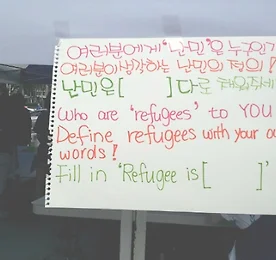 여러분에게 '난민'은 누구인가
여러분이 생각하는 난민의 정의!
난민은 [ ] 다로
Who are 'refugees' to YOU
Define refugees with your ow
words!
Fill in 'Refugee is [ ]'